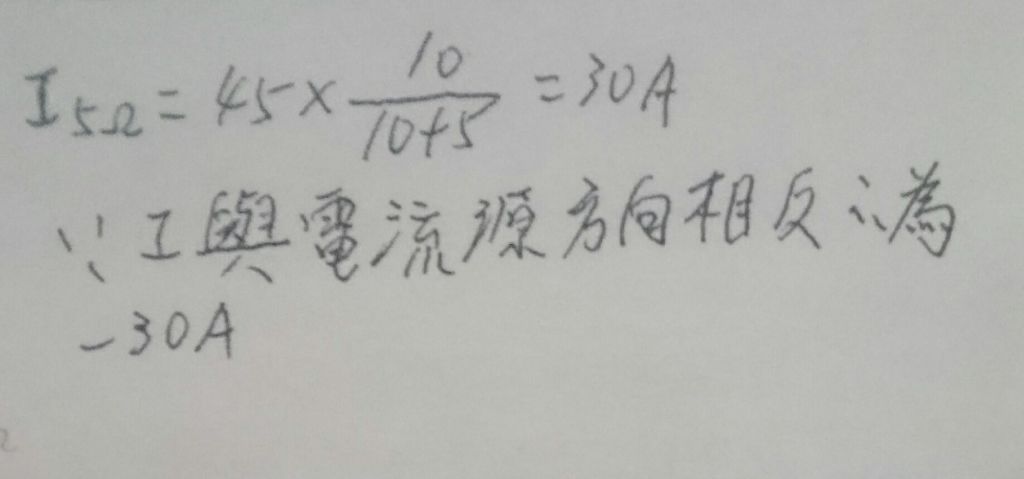 I₅Ω = 45 × 10/(10+5) = 30A
∵ I 與電流源方向相反 ∴為
-30A